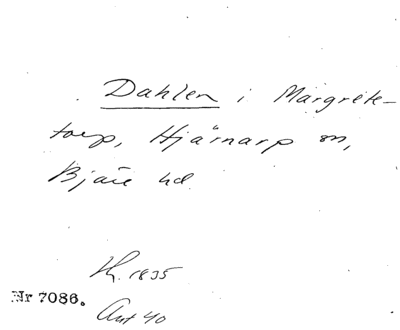 Dahlen i Margrete-
torp, Hjärnarp sn,
Bjäre hd
1835
Nr 7086.
40